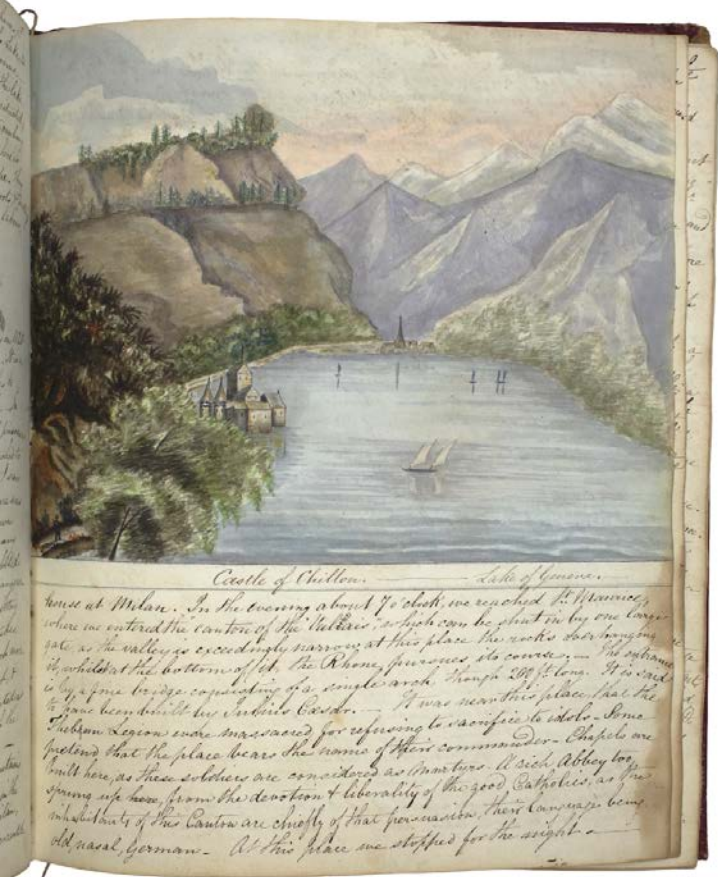 Castle of Chillon. — Lake of Geneva.
house at Milan. In the evening about 7 o'clock, we reached St. Maurice,
where we entered the canton of the Vallais, which can be shut in by one large
gate, as the valley is exceedingly narrow at this place the rocks overhanging
it, whilst at the bottom of it, the Rhone, pursues its course. — The entrance
is by a fine bridge consisting of a single arch, though 200 ft long. It is said
to have been built by Julius Cæsar. — It was near this place that the
Thebean Legion were massacred for refusing to sacrifice to idols – Some
pretend that the place bears the name of their commander – Chapels are
built here, as these soldiers are considered as Martyrs. A rich Abbey too,
sprung up here, from the devotion & liberality of the good Catholics, as the
inhabitants of this Canton are chiefly of that persuasion, their language being
old, nasal, German – At this place we stopped for the night –